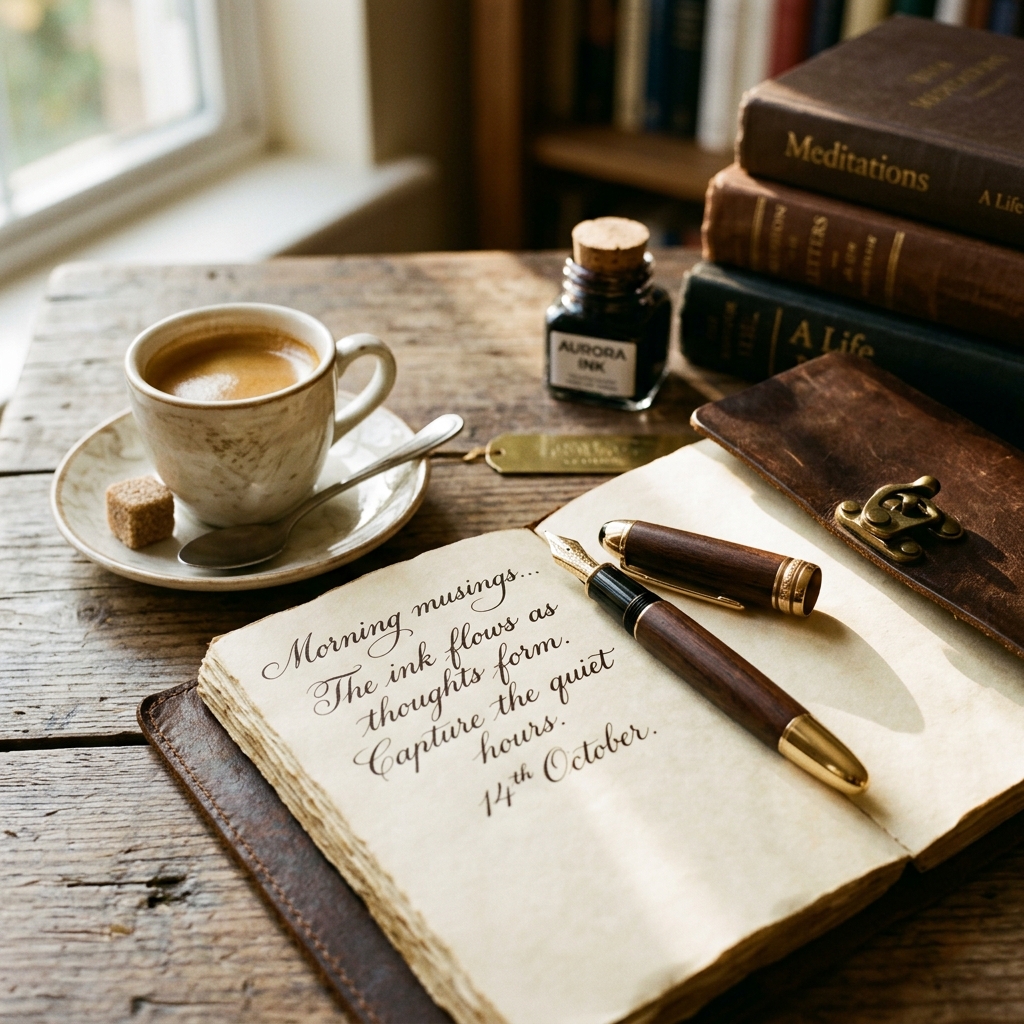 Morning musings...
The ink flows as
thoughts form.
Capture the quiet
hours.
14th October.
AURORA
INK
Meditations
A Life
LETTERS
A Life